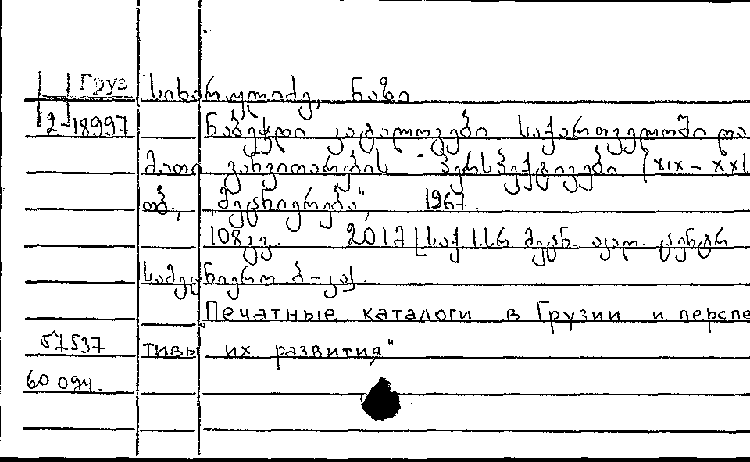 Груз სიხარულიძე, ნაზი
12-18997 ნაბეჭდი კატალოგები საქართველოში და
მათი განვითარების პერსპექტივები (XIX - XX
თბ., „მეცნიერება", 1967.
108 გვ. 2017 [საქ სსრ მეცნ. აკად. ცენტრ
სამეცნიერო ბ-კა].
Печатные каталоги в Грузии и перспе
57537 тивы их развития"
60 094.